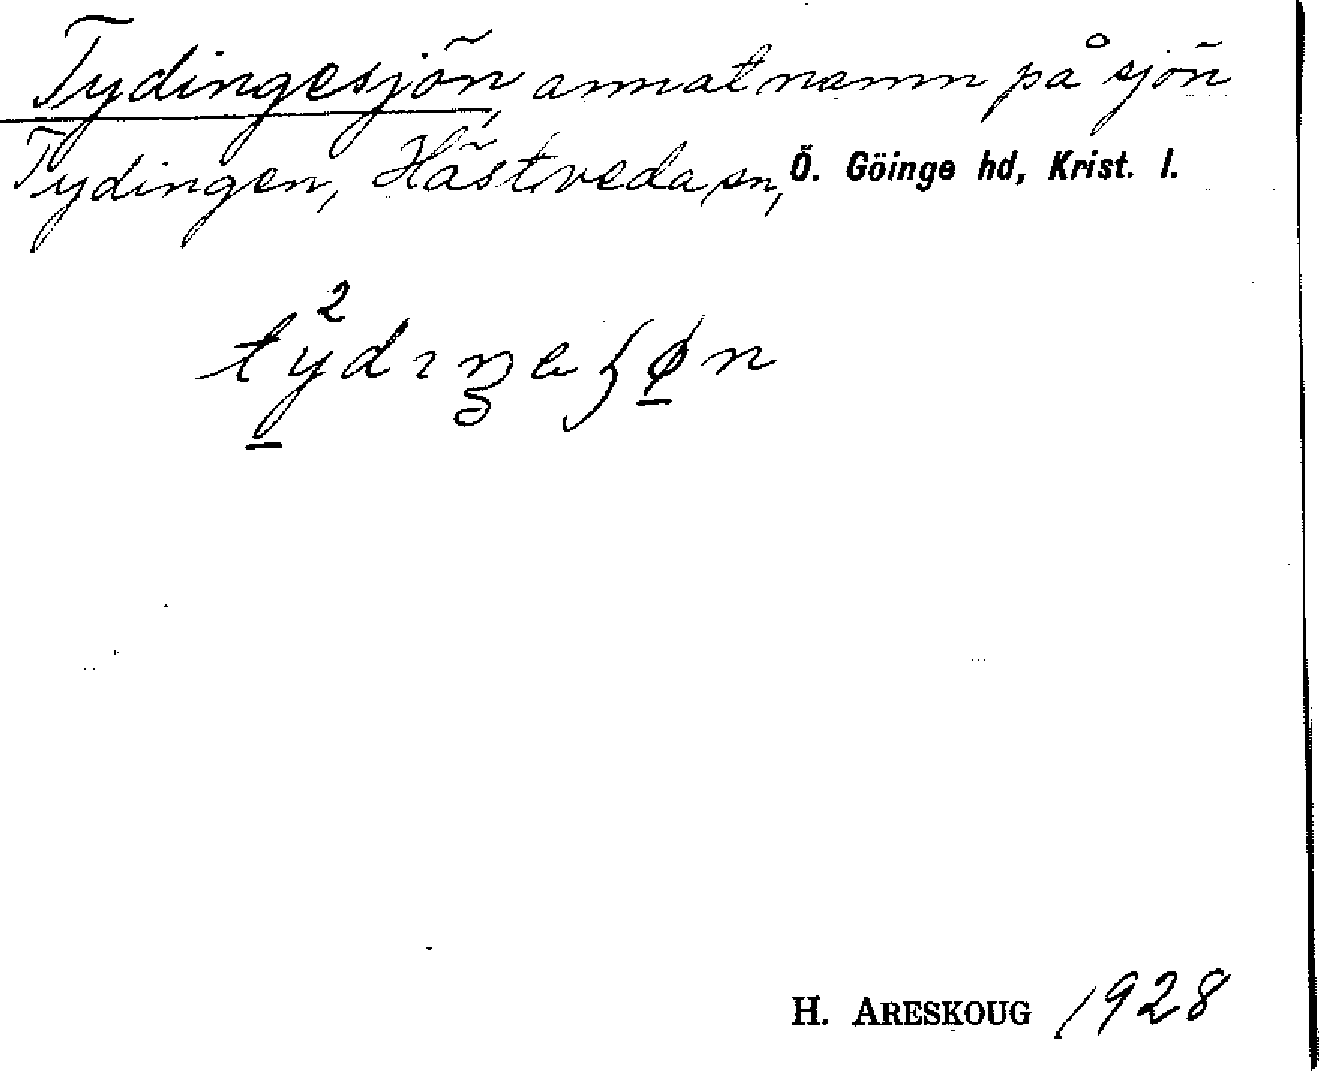 Tydingesjön, annat namn på sjön
Tydingen, Hästveda sn, Ö. Göinge hd, Krist. l.
H. ARESKOUG 1928